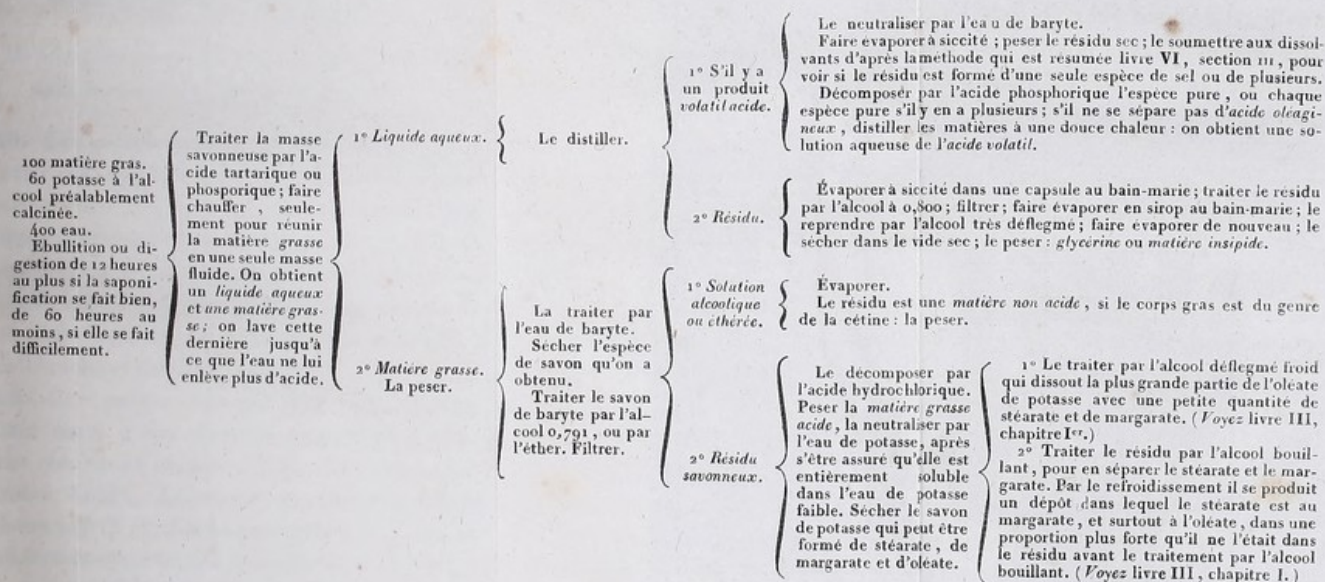 100 matière gras.
60 potasse à l'al-
cool préalablement
calcinée.
400 eau.
Ébullition ou di-
gestion de 12 heures
au plus si la saponi-
fication se fait bien,
de 60 heures au
moins, si elle se fait
difficilement.
Traiter la masse
savonneuse par l'a-
cide tartarique ou
phosporique; faire
chauffer, seule-
ment pour réunir
la matière grasse
en une seule masse
fluide. On obtient
un liquide aqueux
et une matière gras-
se; on lave cette
dernière jusqu'à
ce que l'eau ne lui
enlève plus d'acide.
1° Liquide aqueux.
Le distiller.
1° S'il y a
un produit
volatil acide.
Le neutraliser par l'eau de baryte.
Faire évaporer à siccité; peser le résidu sec; le soumettre aux dissol-
vants d'après la méthode qui est résumée livre VI, section III, pour
voir si le résidu est formé d'une seule espèce de sel ou de plusieurs.
Décomposer par l'acide phosphorique l'espèce pure, ou chaque
espèce pure s'il y en a plusieurs; s'il ne se sépare pas d'acide oléagi-
neux, distiller les matières à une douce chaleur: on obtient une so-
lution aqueuse de l'acide volatil.
2° Résidu.
Évaporer à siccité dans une capsule au bain-marie; traiter le résidu
par l'alcool à 0,800; filtrer; faire évaporer en sirop au bain-marie; le
reprendre par l'alcool très déflegmé; faire évaporer de nouveau; le
sécher dans le vide sec; le peser: glycérine ou matière insipide.
2° Matière grasse.
La peser.
La traiter par
l'eau de baryte.
Sécher l'espèce
de savon qu'on a
obtenu.
Traiter le savon
de baryte par l'al-
cool 0,791, ou par
l'éther. Filtrer.
1° Solution
alcoolique
ou éthérée.
Évaporer.
Le résidu est une matière non acide, si le corps gras est du genre
de la cétine: la peser.
2° Résidu
savonneux.
Le décomposer par
l'acide hydrochlorique.
Peser la matière grasse
acide, la neutraliser par
l'eau de potasse, après
s'être assuré qu'elle est
entièrement soluble
dans l'eau de potasse
faible. Sécher le savon
de potasse qui peut être
formé de stéarate, de
margarate et d'oléate.
1° Le traiter par l'alcool déflegmé froid
qui dissout la plus grande partie de l'oléate
de potasse avec une petite quantité de
stéarate et de margarate. (Voyez livre III,
chapitre Ier.)
2° Traiter le résidu par l'alcool bouil-
lant, pour en séparer le stéarate et le mar-
garate. Par le refroidissement il se produit
un dépôt dans lequel le stéarate est au
margarate, et surtout à l'oléate, dans une
proportion plus forte qu'il ne l'était dans
le résidu avant le traitement par l'alcool
bouillant. (Voyez livre III, chapitre I.)